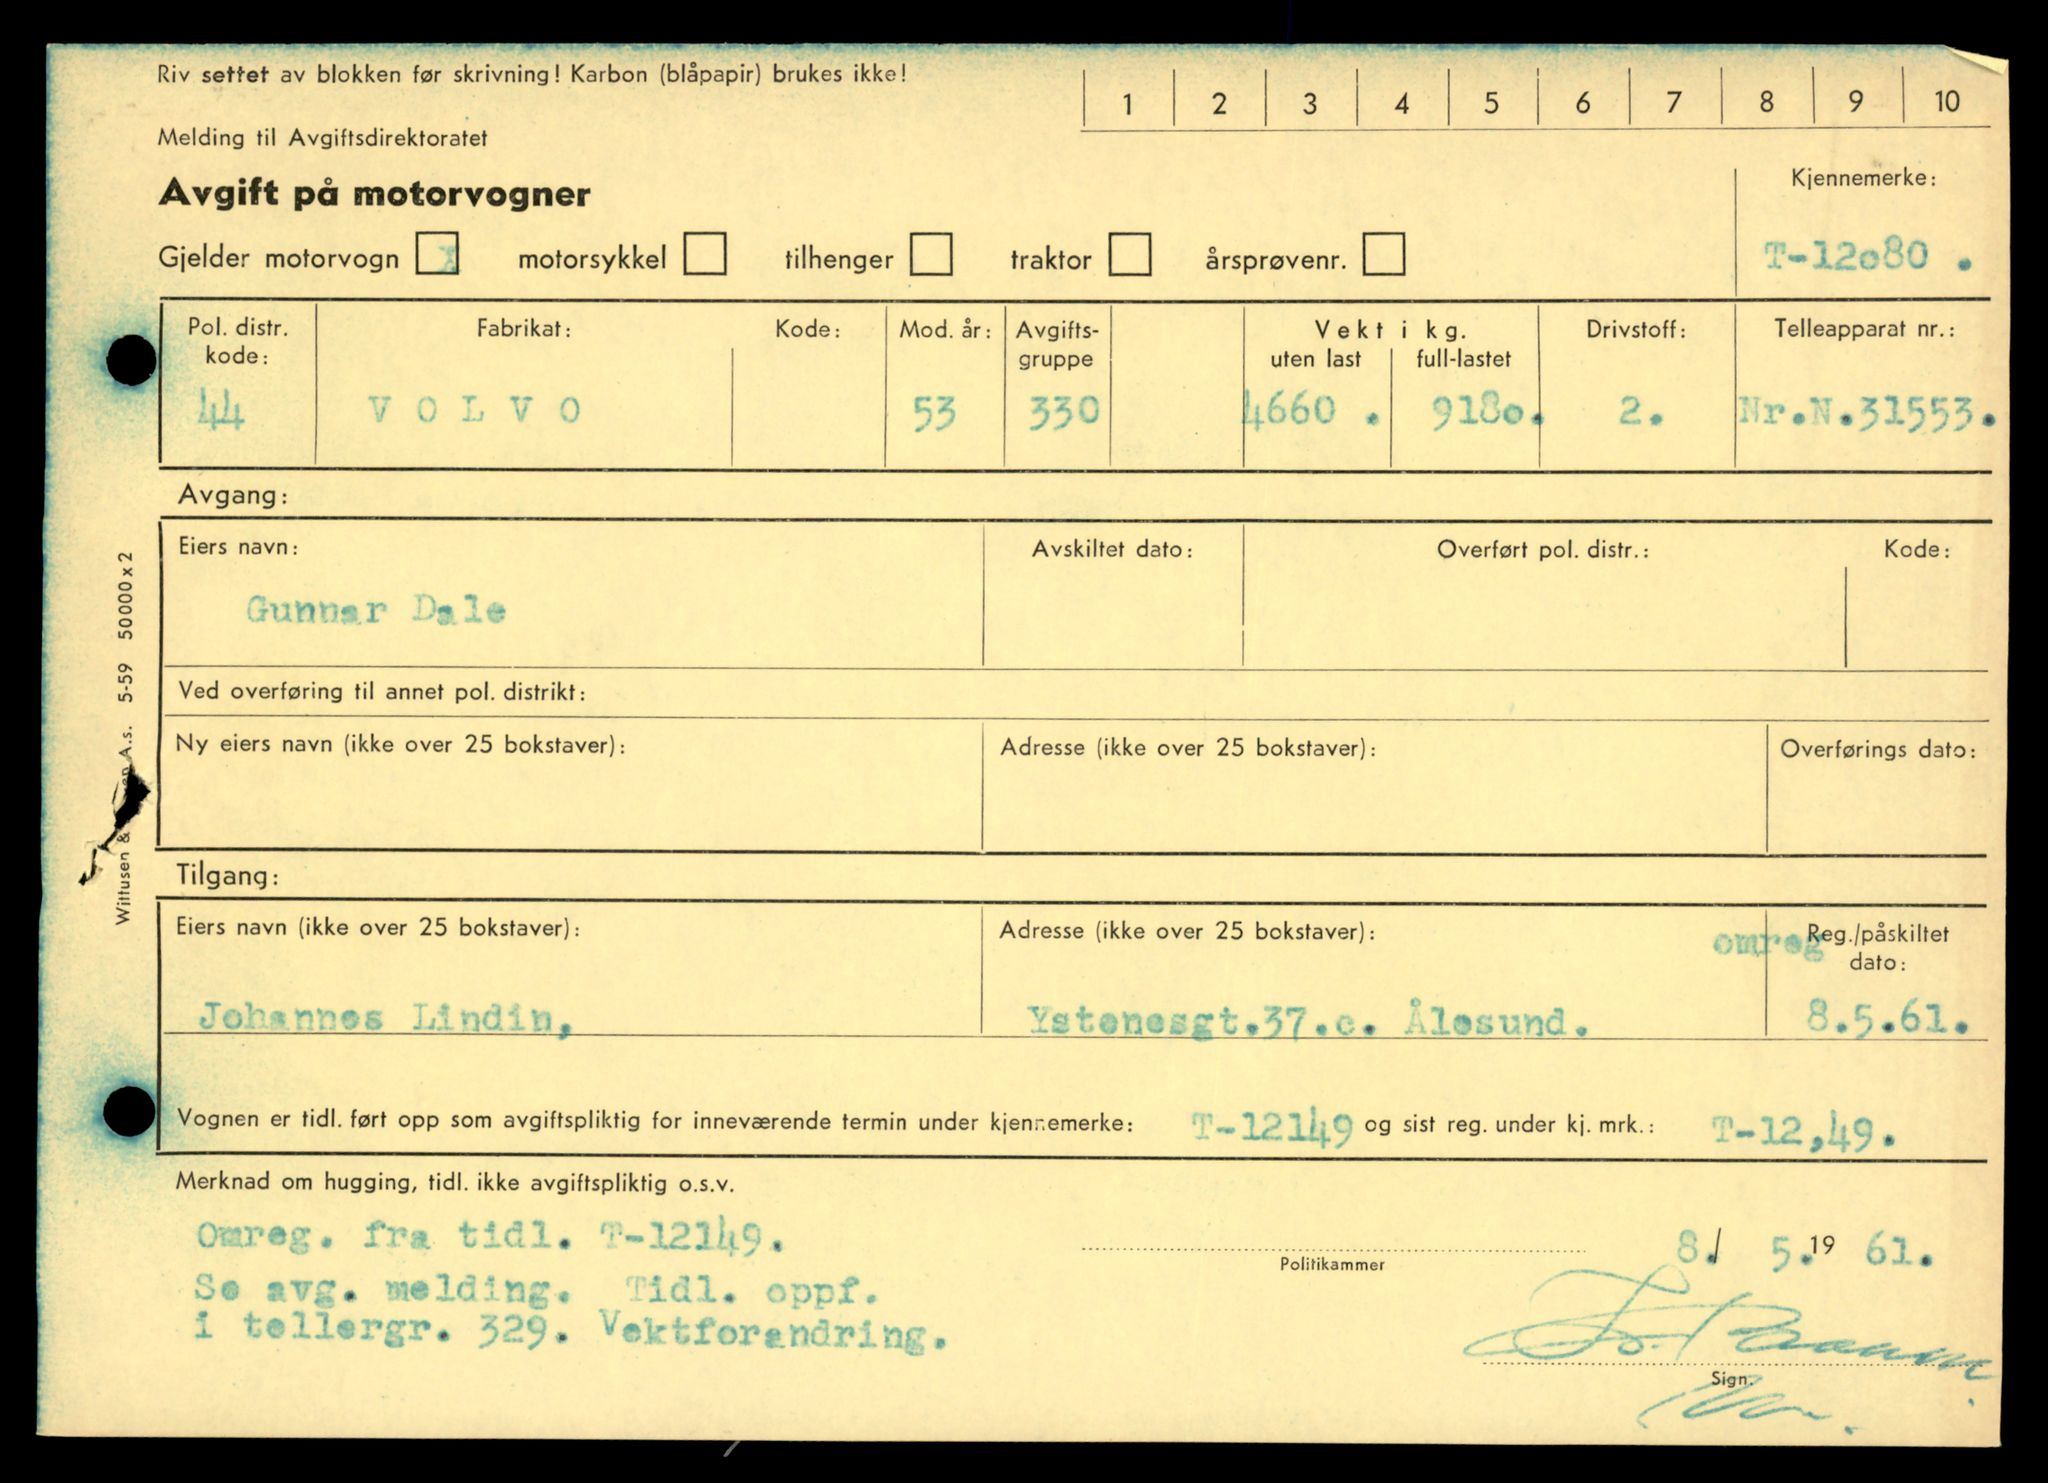 Riv settet av blokken før skrivning! Karbon (blåpapir) brukes ikke!
1 2 3 4 5 6 7 8 9 10
Melding til Avgiftsdirektoratet
Avgift på motorvogner
Kjennemerke:
Gjelder motorvogn X motorsykkel tilhenger traktor årsprøvenr.
T-12080 .
Pol. distr. kode: Fabrikat: Kode: Mod. år: Avgifts-gruppe Vekt i kg. uten last full-lastet Drivstoff: Telleapparat nr.:
44 VOLVO 53 330 4660 . 9180. 2. Nr.N.31553.
Avgang:
Eiers navn: Avskiltet dato: Overført pol. distr.: Kode:
Gunnar Dale
Ved overføring til annet pol. distrikt:
Ny eiers navn (ikke over 25 bokstaver): Adresse (ikke over 25 bokstaver): Overførings dato:
Tilgang:
Eiers navn (ikke over 25 bokstaver): Adresse (ikke over 25 bokstaver): omreg Reg./påskiltet dato:
Johannes Lindin, Ystenesgt.37.c. Ålesund. 8.5.61.
Vognen er tidl. ført opp som avgiftspliktig for inneværende termin under kjennemerke: T-12149 og sist reg. under kj. mrk.: T-12,49.
Merknad om hugging, tidl. ikke avgiftspliktig o.s.v.
Omreg. fra tidl. T-12149.
8./ 5. 19 61.
Politikammer
Se avg. melding. Tidl. oppf.
i tellergr. 329. Vektforandring.
Sign.
Wittusen & A.s. 5-59 50000 x 2